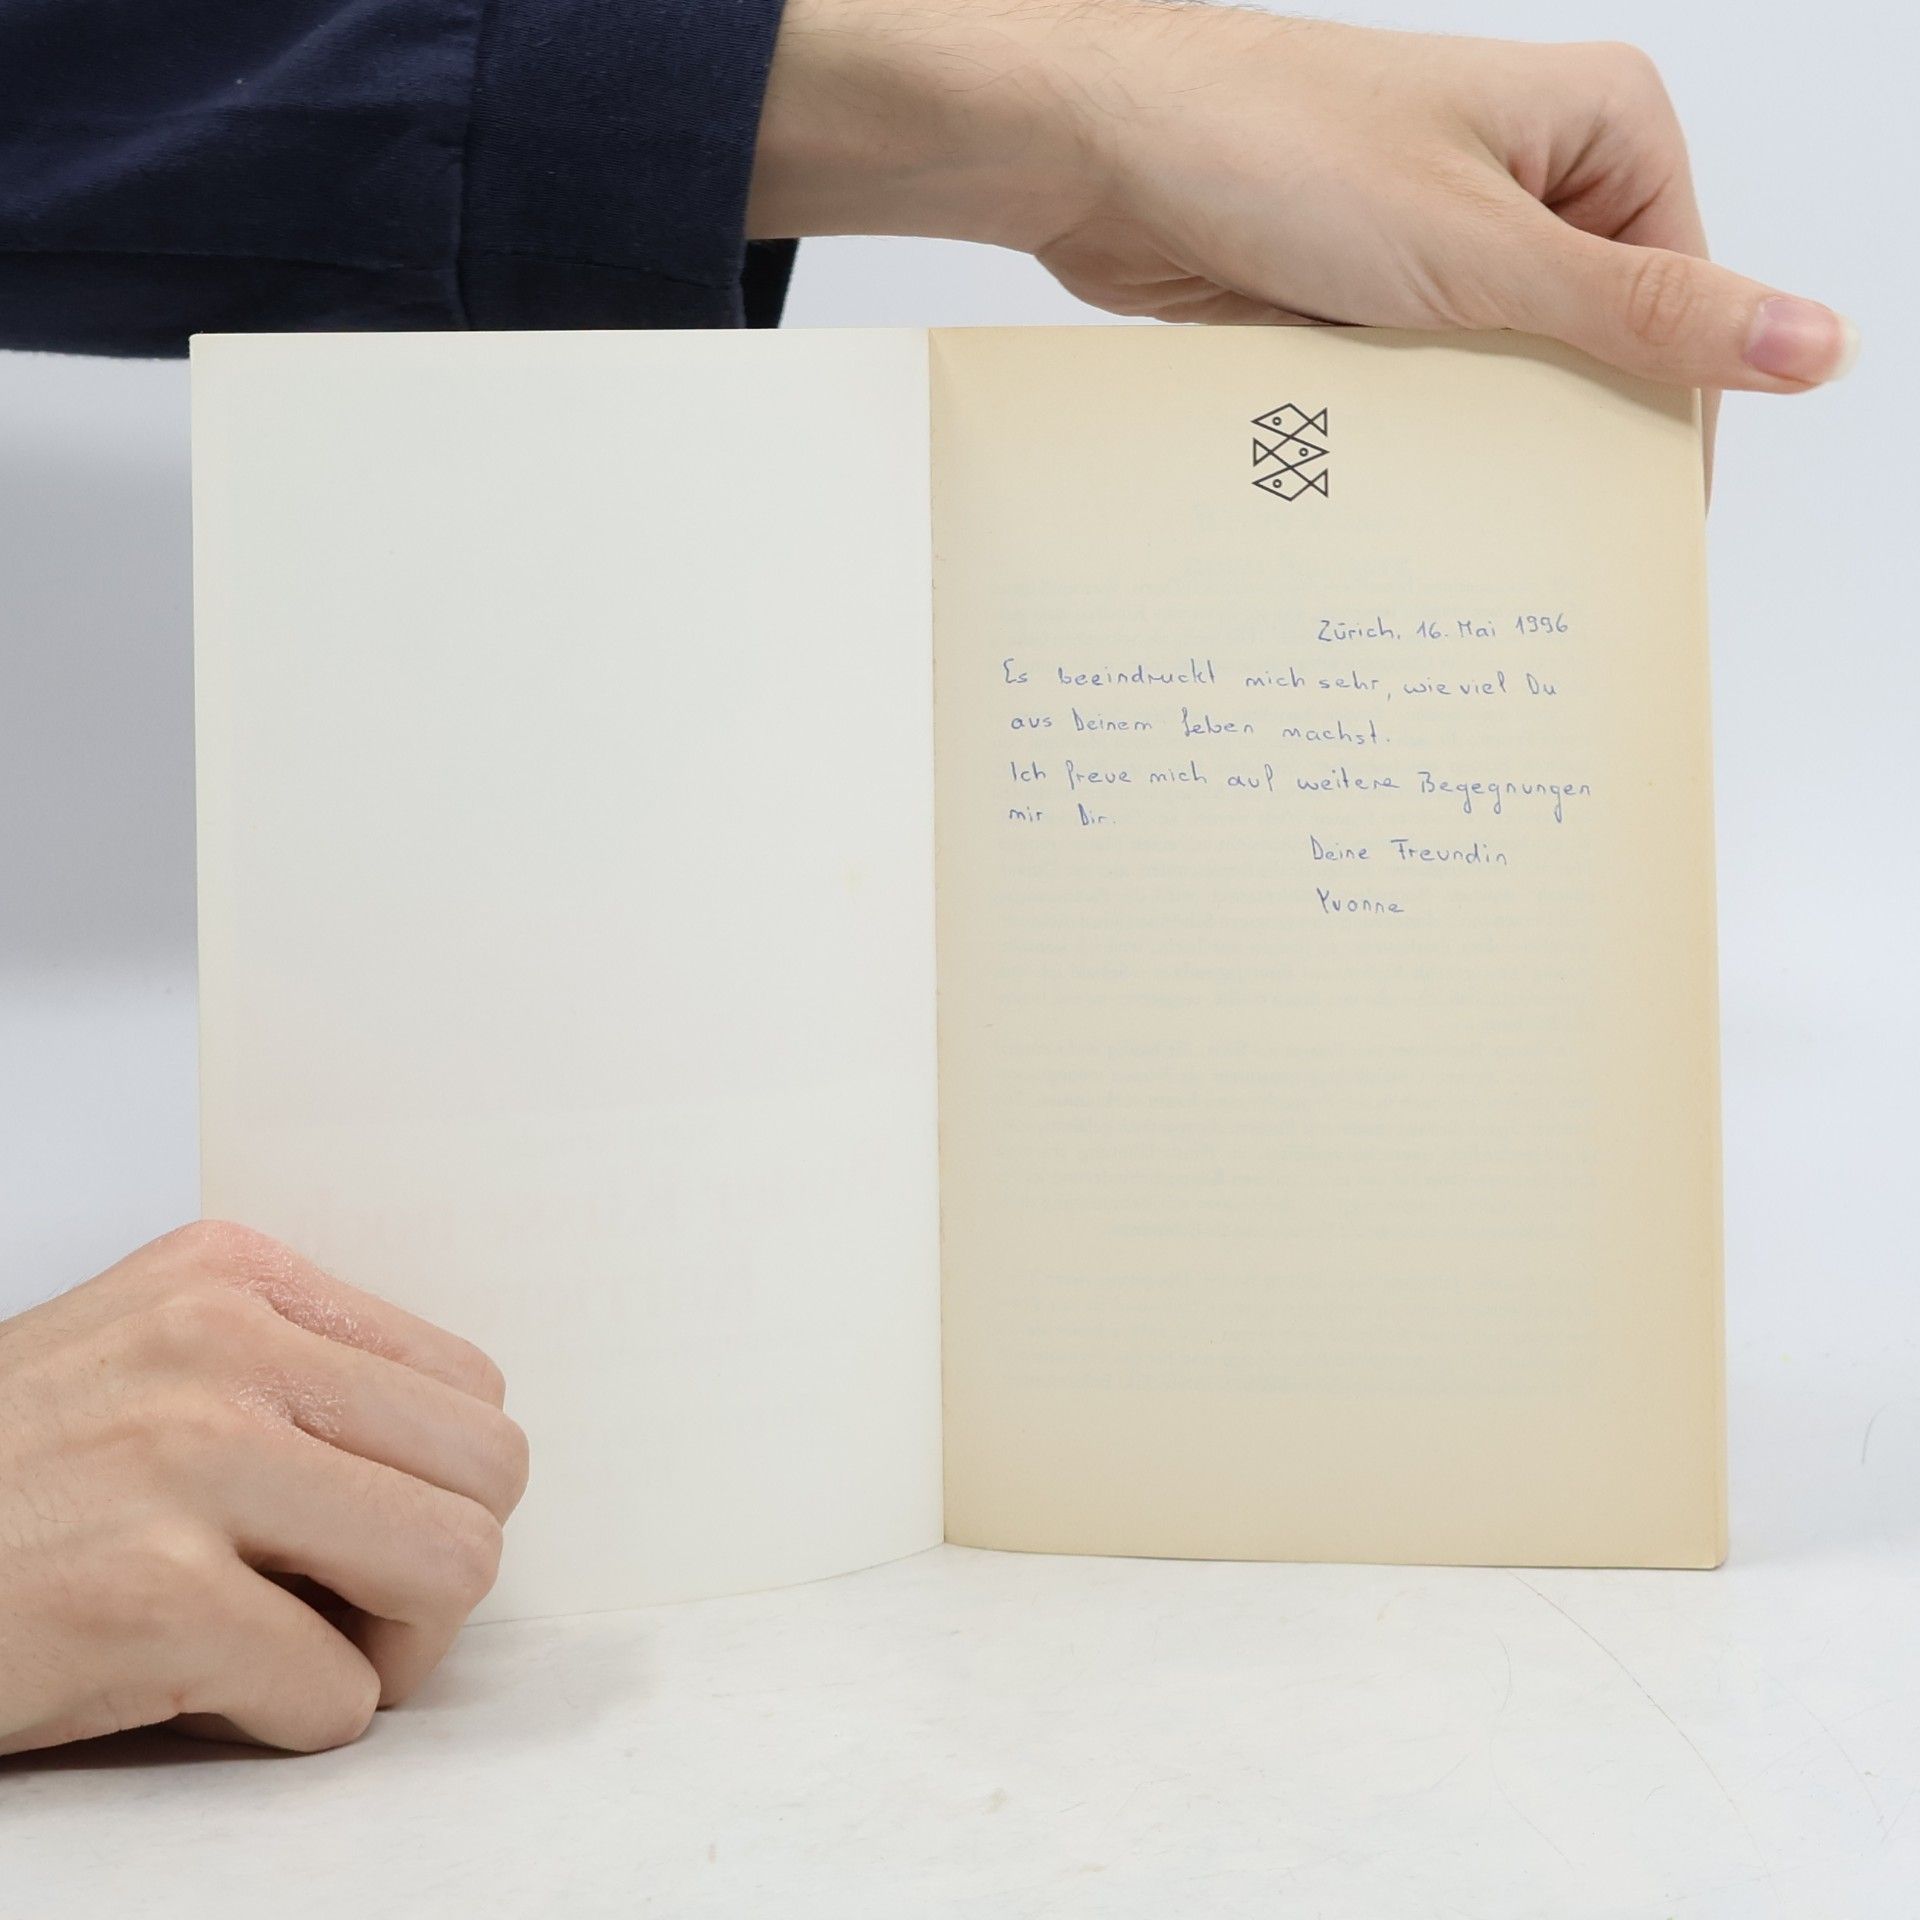 Zürich, 16. Mai 1996
Es beeindruckt mich sehr, wie viel Du
aus Deinem Leben machst.
Ich freue mich auf weitere Begegnungen
mir Dir.
Deine Freundin
Yvonne